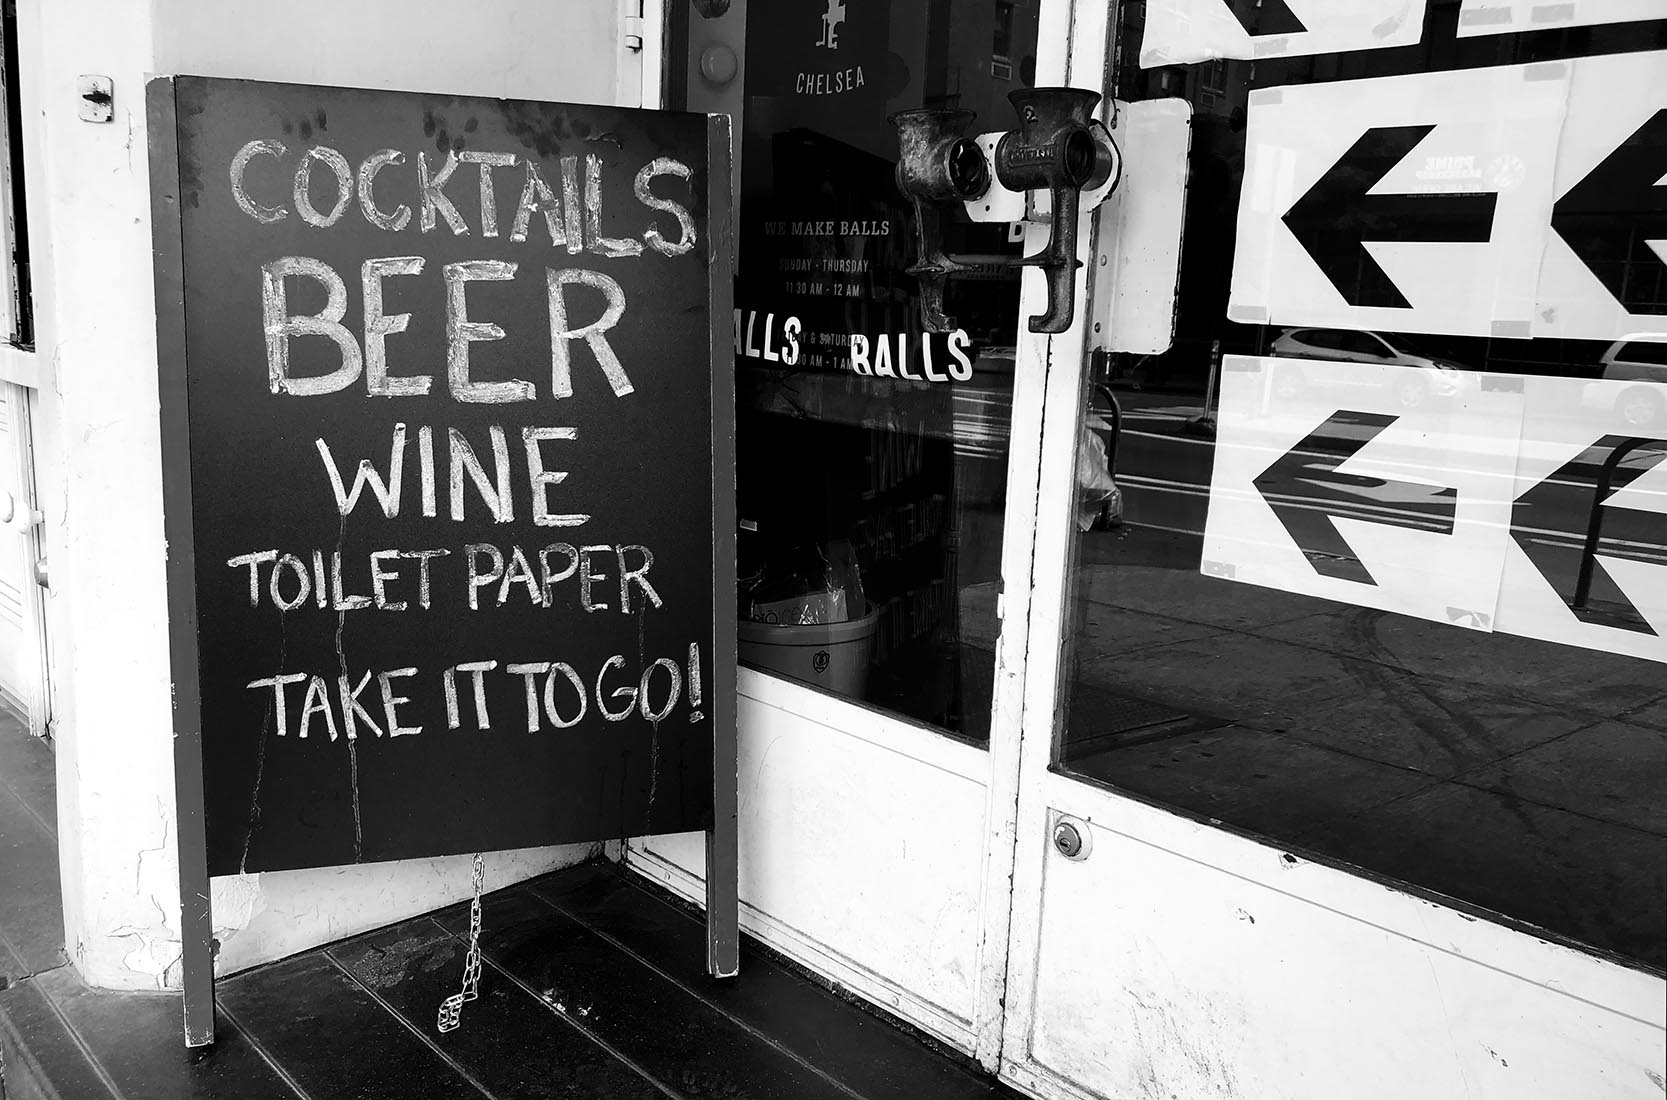 COCKTAILS
BEER
WINE
TOILET PAPER
TAKE IT TO GO!
CHELSEA
WE MAKE BALLS
SUNDAY - THURSDAY
11 30 AM - 12 AM
BALLS